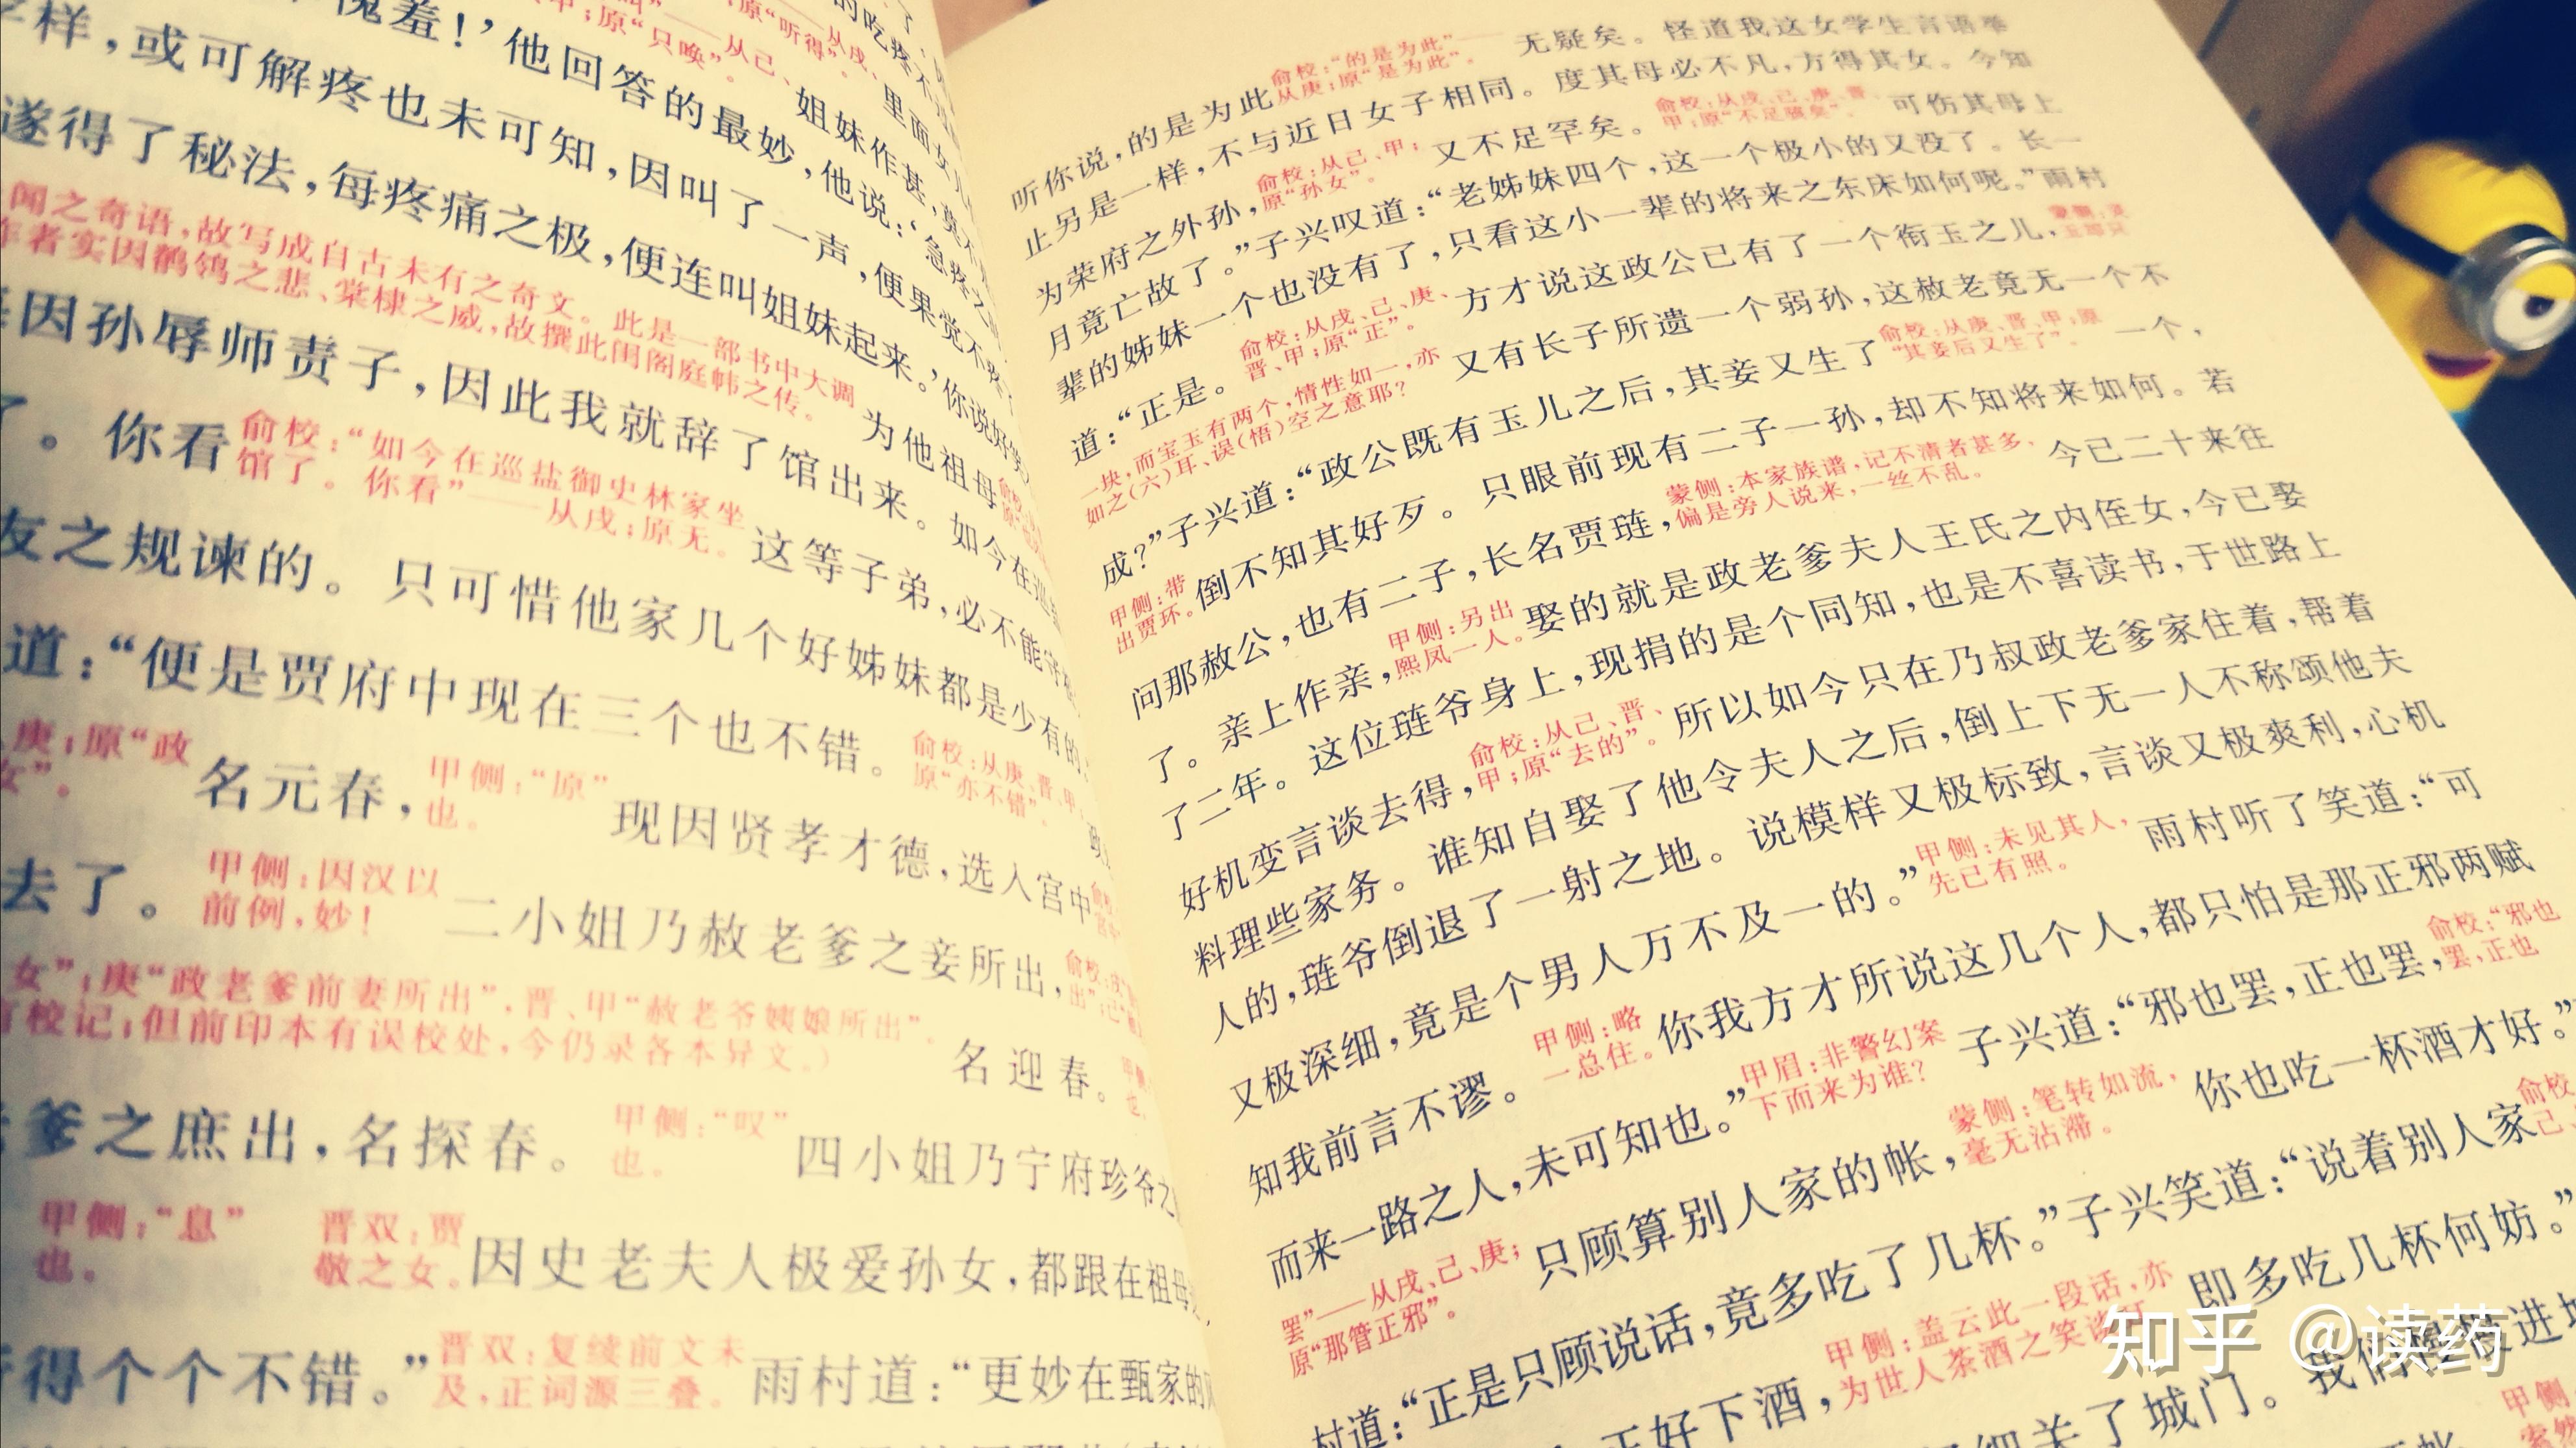 愧羞！’他回答的最妙，他说：‘急疼之
样，或可解疼也未可知，因叫了一声，便果觉不疼
遂得了秘法，每疼痛之极，便连叫姐妹起来。’你说好笑
闻之奇语，故写成自古未有之奇文。此是一部书中大调
作者实因鹡鸰之悲、棠棣之威，故撰此闺阁庭帏之传。
为他祖母
因孙辱师责子，因此我就辞了馆出来。如今在巡
了。你看
俞校：“如今在巡盐御史林家坐
馆了。你看”——从戌；原无。
这等子弟，必不能守
友之规谏的。只可惜他家几个好姊妹都是少有的
道：“便是贾府中现在三个也不错。
俞校：从庚、晋、甲
原“亦不错”
庚；原“政
女”。
名元春，
甲侧：“原”
也。
现因贤孝才德，选入宫中
去了。
甲侧：因汉以
前例，妙！
二小姐乃赦老爹之妾所出，
女”；庚“政老爹前妻所出”，晋、甲“赦老爷姨娘所出”。
校记；但前印本有误校处，今仍录各本异文。）
名迎春。
爹之庶出，名探春。
甲侧：“叹”
也。
四小姐乃宁府珍爷之
甲侧：“息”
也。
晋双：贾
敬之女。
因史老夫人极爱孙女，都跟在祖母
得个个不错。”
晋双：复续前文未
及，正词源三叠。
雨村道：“更妙在甄家的
听你说，的是为此
俞校：“的是为此”——
从庚；原“是为此”。
无疑矣。怪道我这女学生言语举
止另是一样，不与近日女子相同。度其母必不凡，方得其女。今知
为荣府之外孙，
俞校：从己、甲；
原“孙女”。
又不足罕矣。
俞校：从戌、己、庚、晋、
甲；原“不足骇矣”。
可伤其母上
月竟亡故了。”子兴叹道：“老姊妹四个，这一个极小的又没了。长一
辈的姊妹一个也没有了，只看这小一辈的将来之东床如何呢。”雨村
道：“正是。
俞校：从戌、己、庚、
晋、甲；原“正”。
方才说这政公已有了一个衔玉之儿，
一块，而宝玉有两个，情性如一，亦
如之（六）耳、误（悟）空之意耶？
又有长子所遗一个弱孙，这赦老竟无一个不
成？”子兴道：“政公既有玉儿之后，其妾又生了
俞校：从庚、晋、甲；原
“其妾后又生了”。
一个，
甲侧：带
出贾环。
倒不知其好歹。只眼前现有二子一孙，却不知将来如何。若
问那赦公，也有二子，长名贾琏，
蒙侧：本家族谱，记不清者甚多，
偏是旁人说来，一丝不乱。
今已二十来往
了。亲上作亲，
甲侧：另出
熙凤一人。
娶的就是政老爹夫人王氏之内侄女，今已娶
了二年。这位琏爷身上，现捐的是个同知，也是不喜读书，于世路上
好机变言谈去得，
俞校：从己、晋、
甲；原“去的”。
所以如今只在乃叔政老爹家住着，帮着
料理些家务。谁知自娶了他令夫人之后，倒上下无一人不称颂他夫
人的，琏爷倒退了一射之地。说模样又极标致，言谈又极爽利，心机
又极深细，竟是个男人万不及一的。”
甲侧：未见其人，
先已有照。
雨村听了笑道：“可
知我前言不谬。
甲侧：略
一总住。
你我方才所说这几个人，都只怕是那正邪两赋
而来一路之人，未可知也。”
甲眉：非警幻案
下而来为谁？
子兴道：“邪也罢，正也罢，
俞校：“邪也
罢，正也
罢”——从戌、己、庚；
原“那管正邪”。
只顾算别人家的帐，
蒙侧：笔转如流，
毫无沾滞。
你也吃一杯酒才好。”
村道：“正是只顾说话，竟多吃了几杯。”子兴笑道：“说着别人家
正好下酒，
甲侧：盖云此一段话，亦
为世人茶酒之笑谈
即多吃几杯何妨。”
关了城门。我们
知乎 @读药